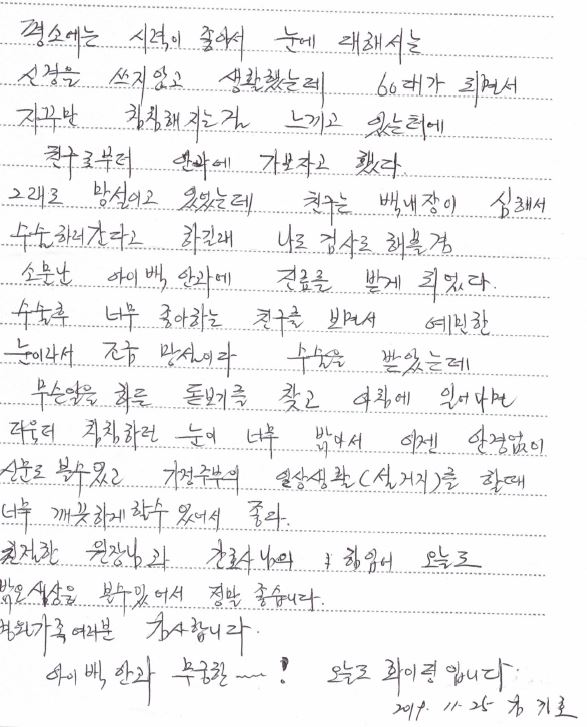 평소에는 시력이 좋아서 눈에 대해서는
신경을 쓰지않고 생활했는데 60대가 되면서
자꾸만 침침해지는걸 느끼고 있는터에
친구로부터 안과에 가보자고 했다.
그래도 망설이고 있었는데 친구는 백내장이 심해서
수술하러간다고 하길래 나도 검사도 해볼겸
소문난 아이백 안과에 진료를 받게 되었다.
수술후 너무 좋아하는 친구를 보면서 예민한
눈이라서 조금 망설이다 수술을 받았는데
무슨일을 하를 돋보기를 찾고 아침에 일어나면
더욱더 침침하던 눈이 너무 밝아서 이젠 안경없이
신문도 볼수있고 가정주부의 일상생활(설거지)를 할때
너무 깨끗하게 할수 있어서 좋다.
친절한 원장님과 간호사님의 힘입어 오늘도
밝은세상을 볼수있어서 정말 좋습니다.
병원가족여러분 감사합니다.
아이백 안과 무궁한 ~~! 오늘도 화이팅입니다.
2019. 11. 25